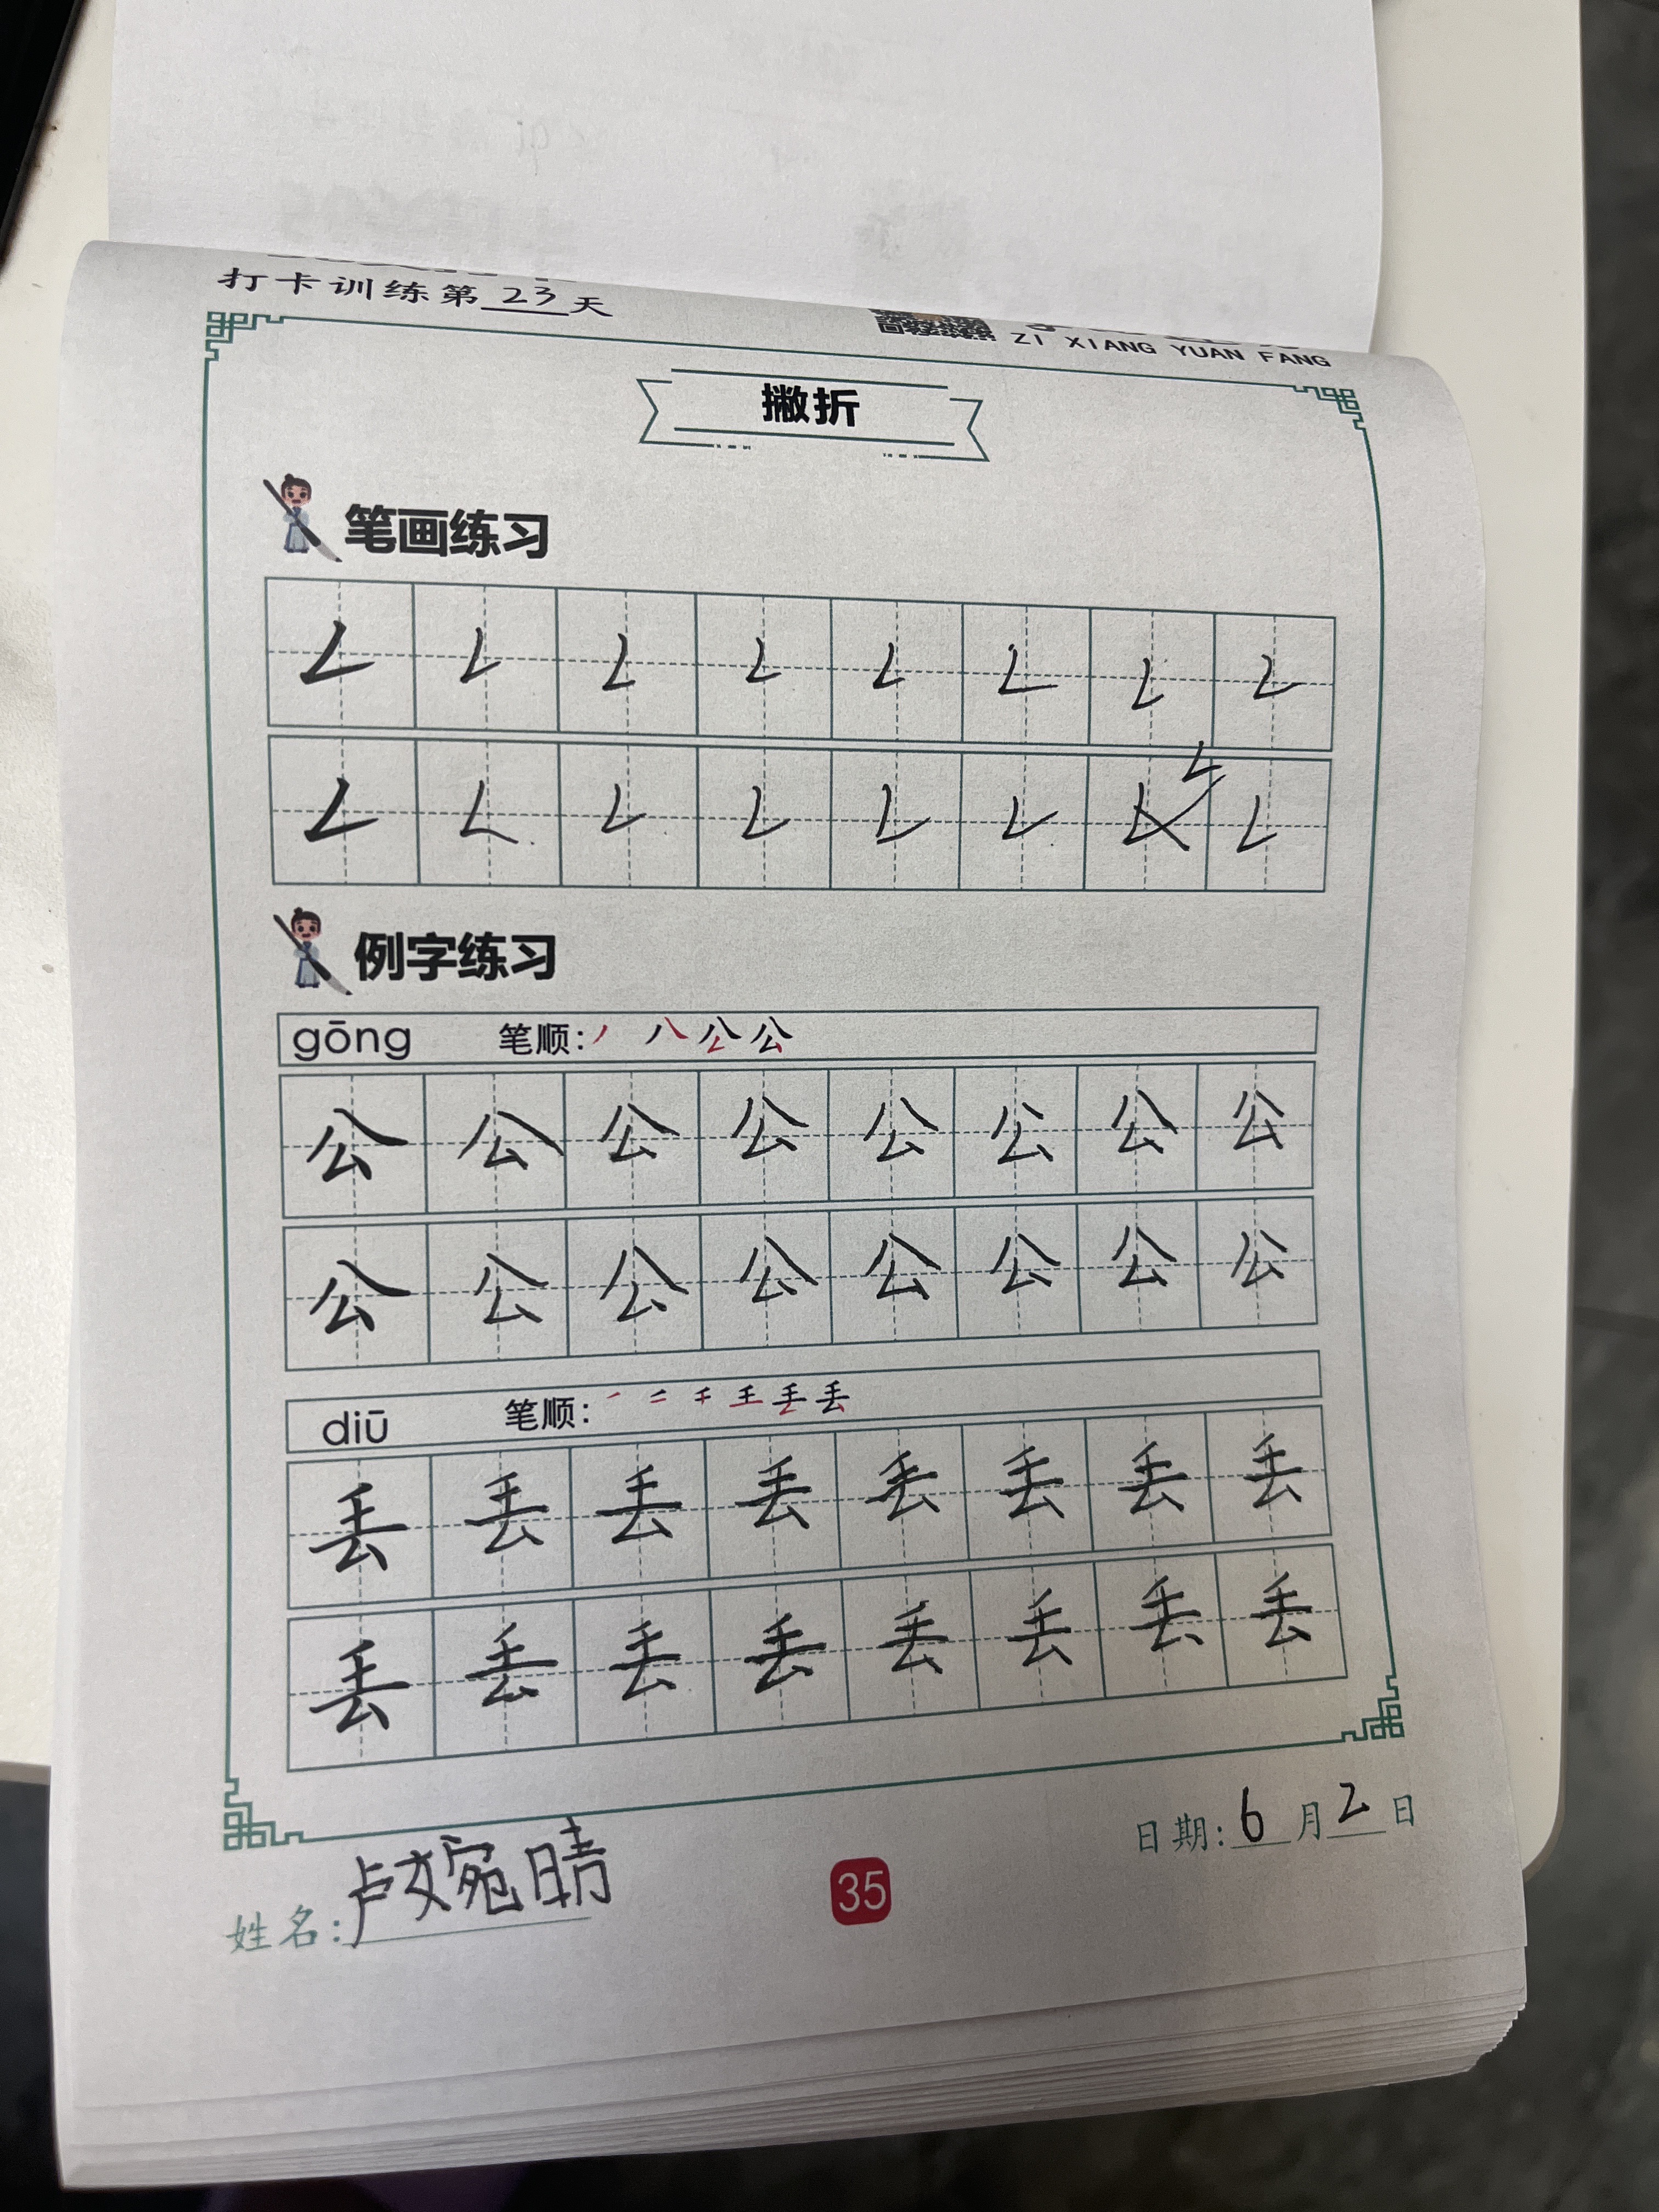 打卡训练第23天
ZI XIANG YUAN FANG
撇折
笔画练习
𠃋 𠃋 𠃋 𠃋 𠃋 𠃋 𠃋 𠃋
𠃋 𠃋 𠃋 𠃋 𠃋 𠃋 𠃋 𠃋
例字练习
gōng 笔顺: 丿 八 公 公
公 公 公 公 公 公 公 公
公 公 公 公 公 公 公 公
diū 笔顺:
丢 丢 丢 丢 丢 丢 丢 丢
丢 丢 丢 丢 丢 丢 丢 丢
日期:6月2日
姓名:卢文宛晴
35